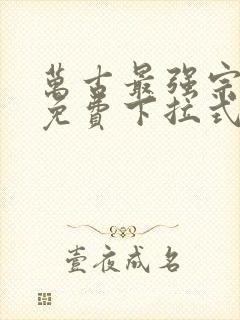 萬古最强宗
免費下拉式
壹夜成名